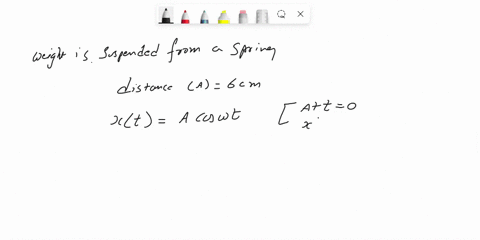 weight is suspended from a spring
distance (A) = 6 cm
x(t) = A cos ωt [ At t = 0
x